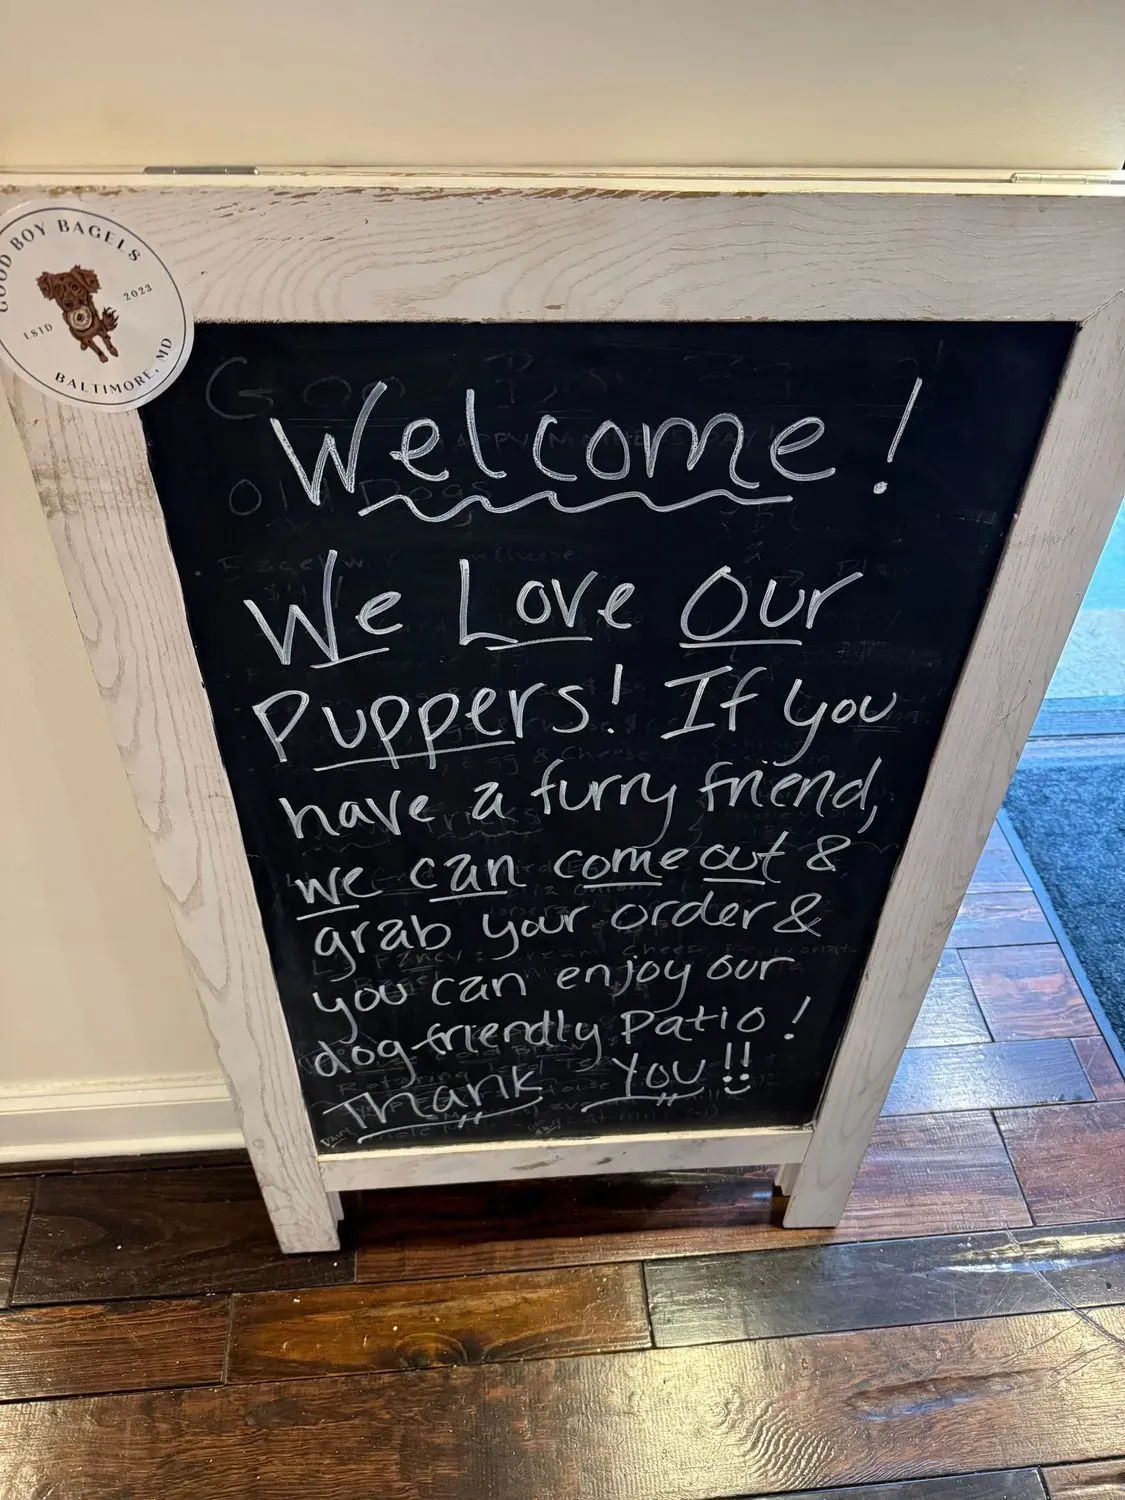 GOOD BOY BAGELS
ESTD 2023
BALTIMORE, MD
Welcome!
We Love Our
Puppers! If you
have a furry friend,
we can come out &
grab your order &
you can enjoy our
dog-friendly patio!
Thank You!!